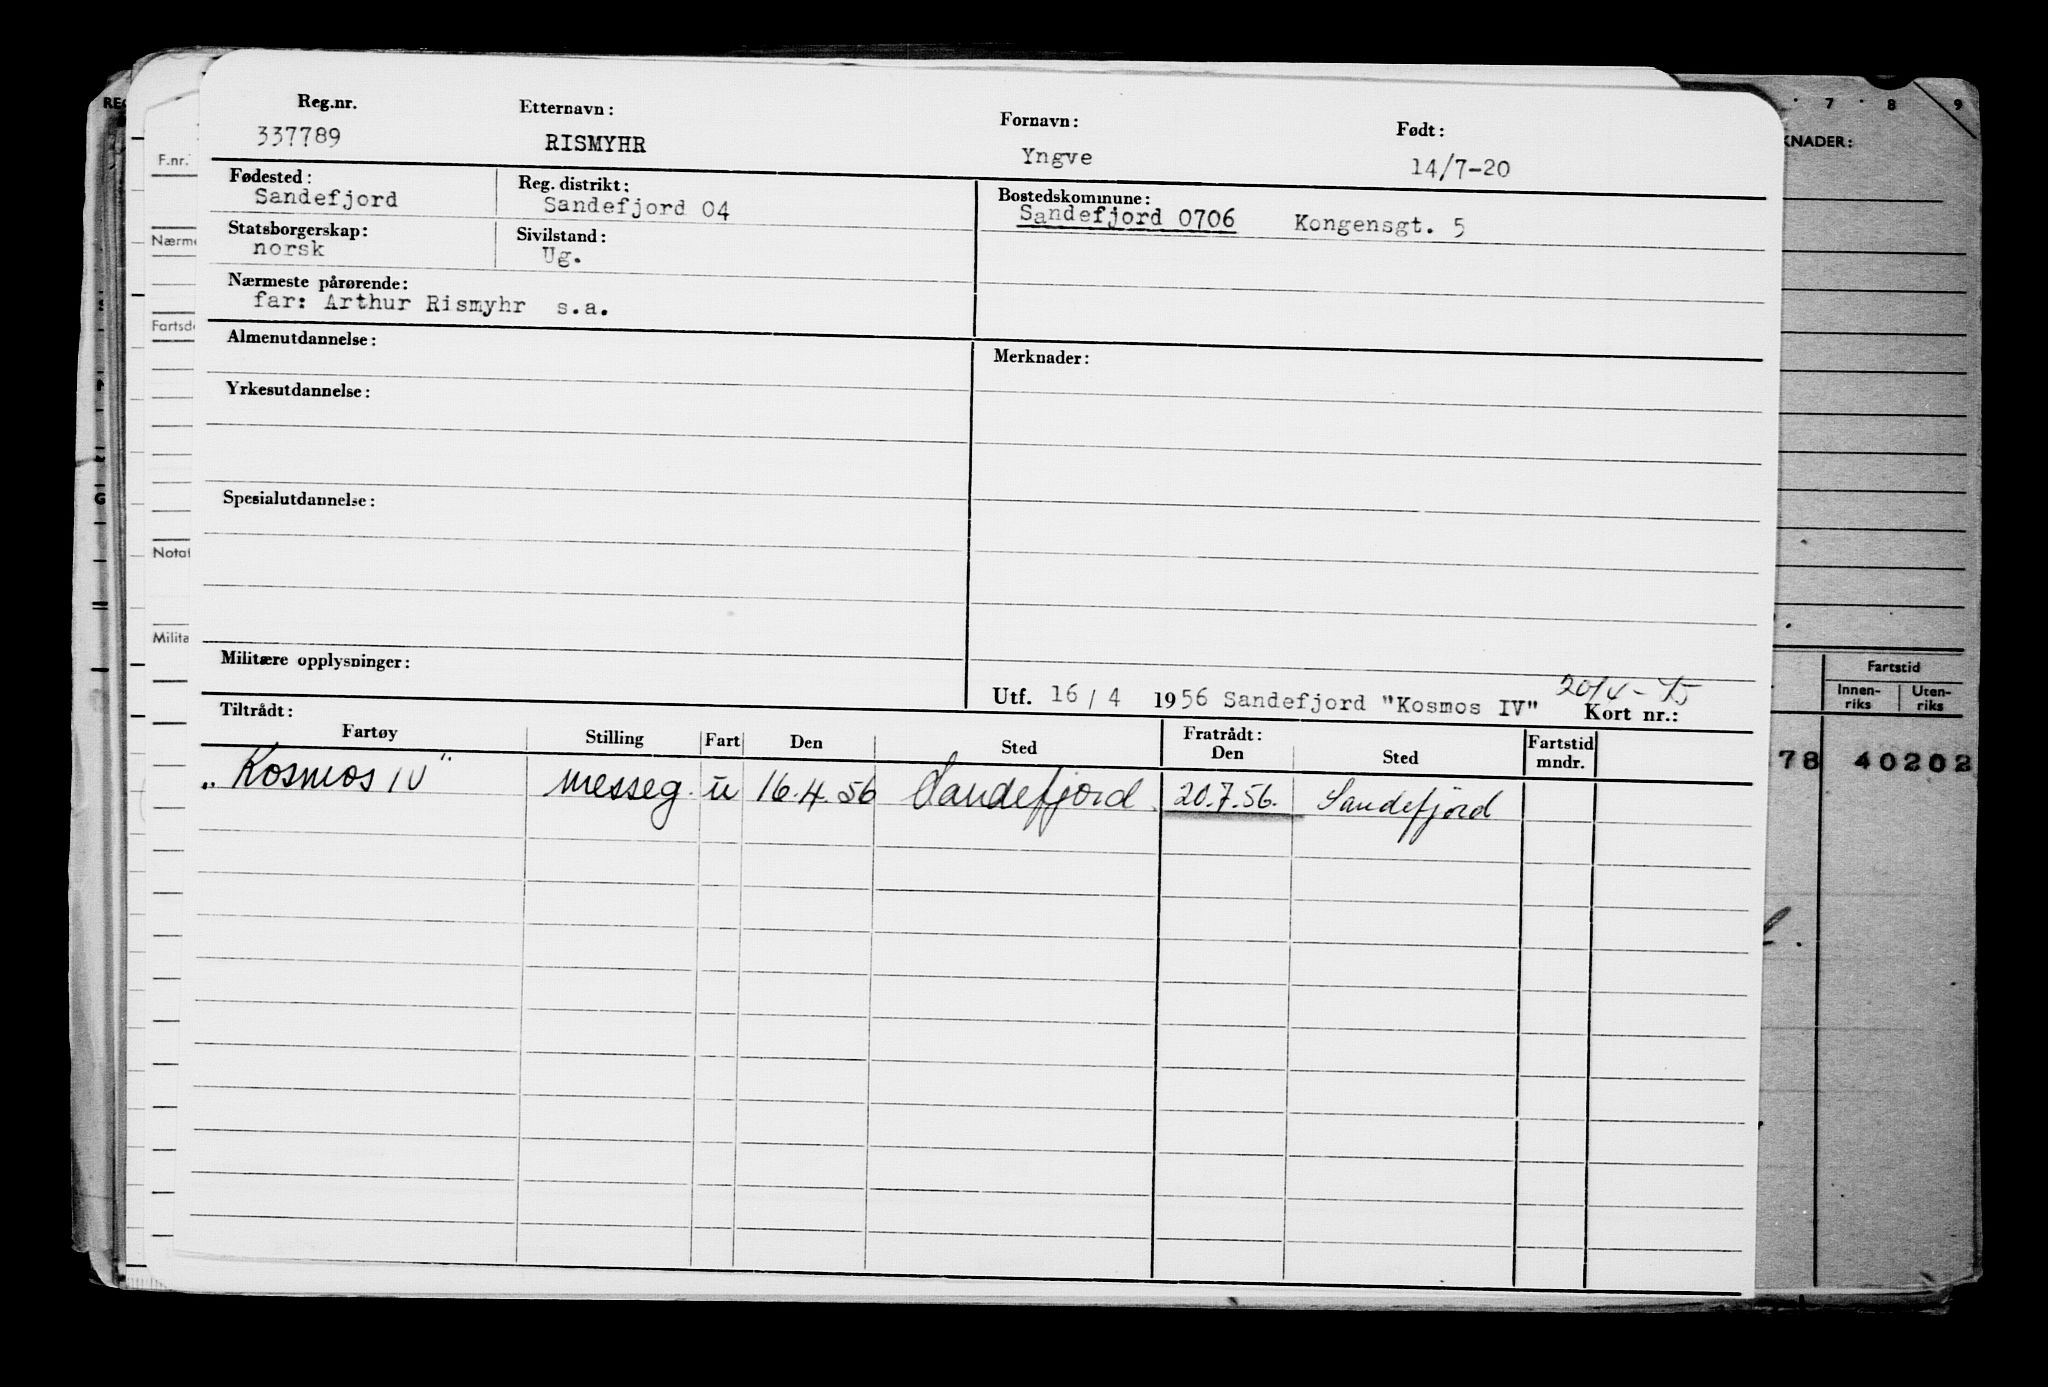 Reg.nr. Etternavn: Fornavn: Født:
337789 RISMYHR Yngve 14/7-20
Fødested: Reg. distrikt: Bostedskommune:
Sandefjord Sandefjord 04 Sandefjord 0706 Kongensgt. 5
Statsborgerskap: Sivilstand:
norsk Ug.
Nærmeste pårørende:
far: Arthur Rismyhr s.a.
Almenutdannelse: Merknader:
Yrkesutdannelse:
Spesialutdannelse:
Militære opplysninger:
Utf. 16/4 1956 Sandefjord "Kosmos IV" Kort nr.:
Tiltrådt: Fratrådt:
Fartøy Stilling Fart Den Sted Den Sted Fartstid mndr.
„Kosmos IV" messeg. u 16.4.56 Sandefjord. 20.7.56. Sandefjord
F.nr.
Nærme
Fartsde
Notat
Milita
REG
G
7 8 9
KNADER:
Fartstid
Innen-
riks
Uten-
riks
78 40202